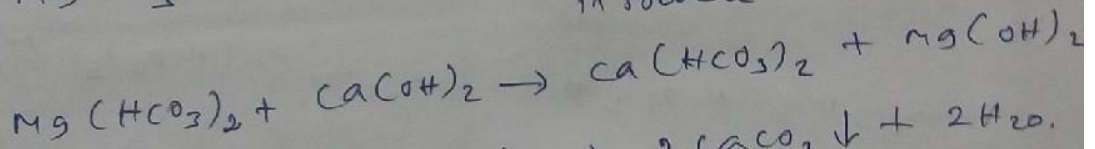 Mg (HCO3)2 + Ca(OH)2 → Ca(HCO3)2 + Mg(OH)2
2 CaCO3 ↓ + 2H2O.